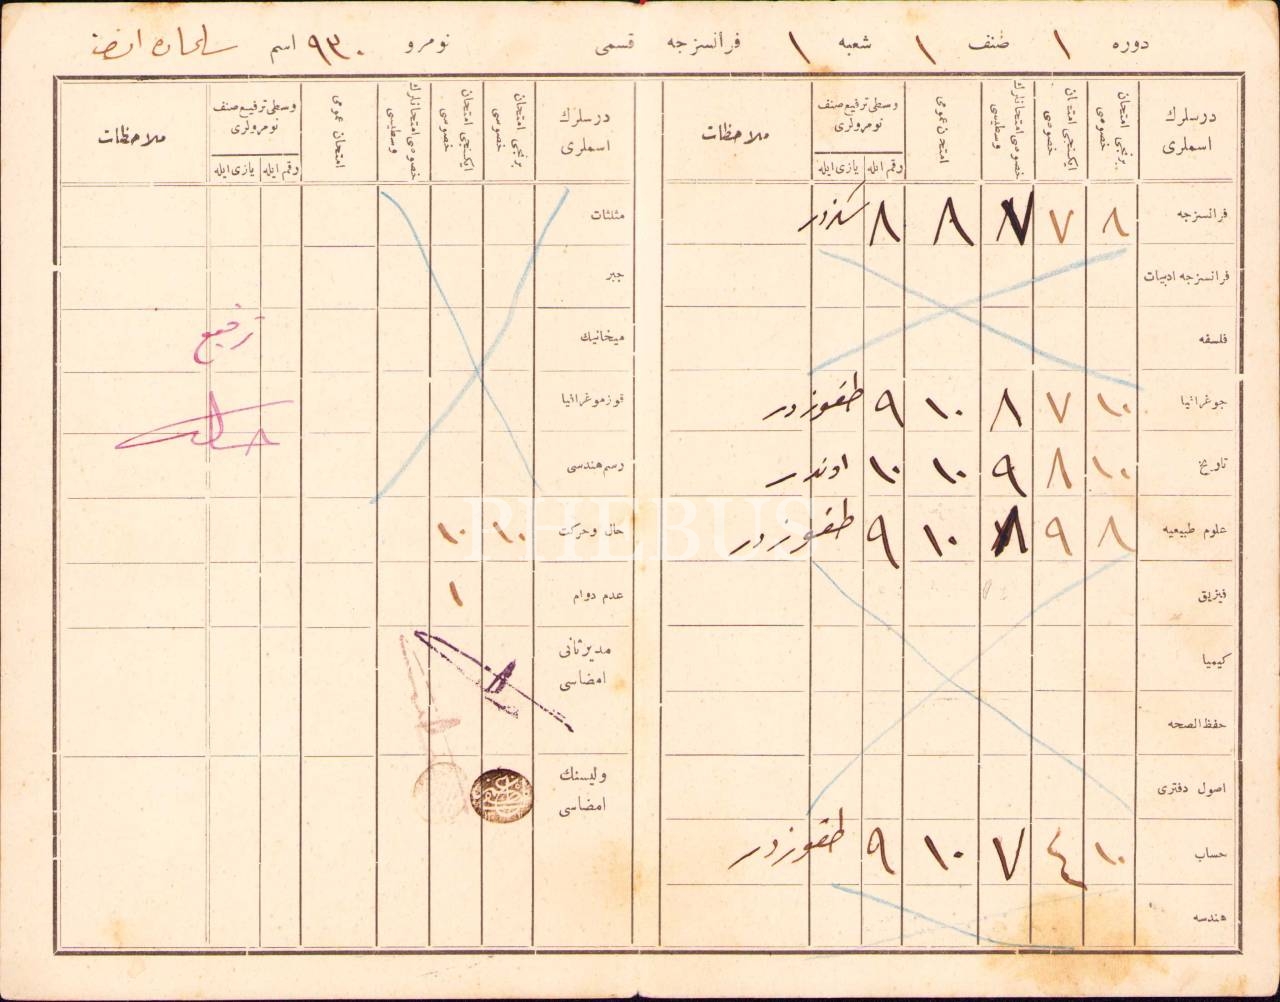 دوره ١ صنف ١ شعبه ١ فرانسزجه قسمی نومرو ٩٣٠ اسم
درسلرك اسملری
برنجی امتحان خصوصی
ایكنجی امتحان خصوصی
خصوصی امتحانلرك وسطیسی
امتحان عمومی
وسطی ترفیع صنف نومرولری
رقم ایله
یازی ایله
ملاحظات
فرانسزجه ٨ ٧ ٧ ٨ ٨ سكزدر
فرانسزجه ادبیات
فلسفه
جوغرافیا ١٠ ٧ ٨ ١٠ ٩ طقوزدر
تاریخ ١٠ ٨ ٩ ١٠ ١٠ اوندر
علوم طبیعیه ٨ ٩ ٨ ١٠ ٩ طقوزدر
فیزیق
كیمیا
حفظ الصحه
اصول دفتری
حساب ١٠ ٤ ٧ ١٠ ٩ طقوزدر
هندسه
درسلرك اسملری
برنجی امتحان خصوصی
ایكنجی امتحان خصوصی
خصوصی امتحانلرك وسطیسی
امتحان عمومی
وسطی ترفیع صنف نومرولری
رقم ایله
یازی ایله
ملاحظات
مثلثات
جبر
میخانیك
ترفیع
قوزموغرافیا
رسم هندسی
حال وحركت ١٠ ١٠
عدم دوام ١
مدیر ثانی امضاسی
ولیسنك امضاسی
PHEBUS